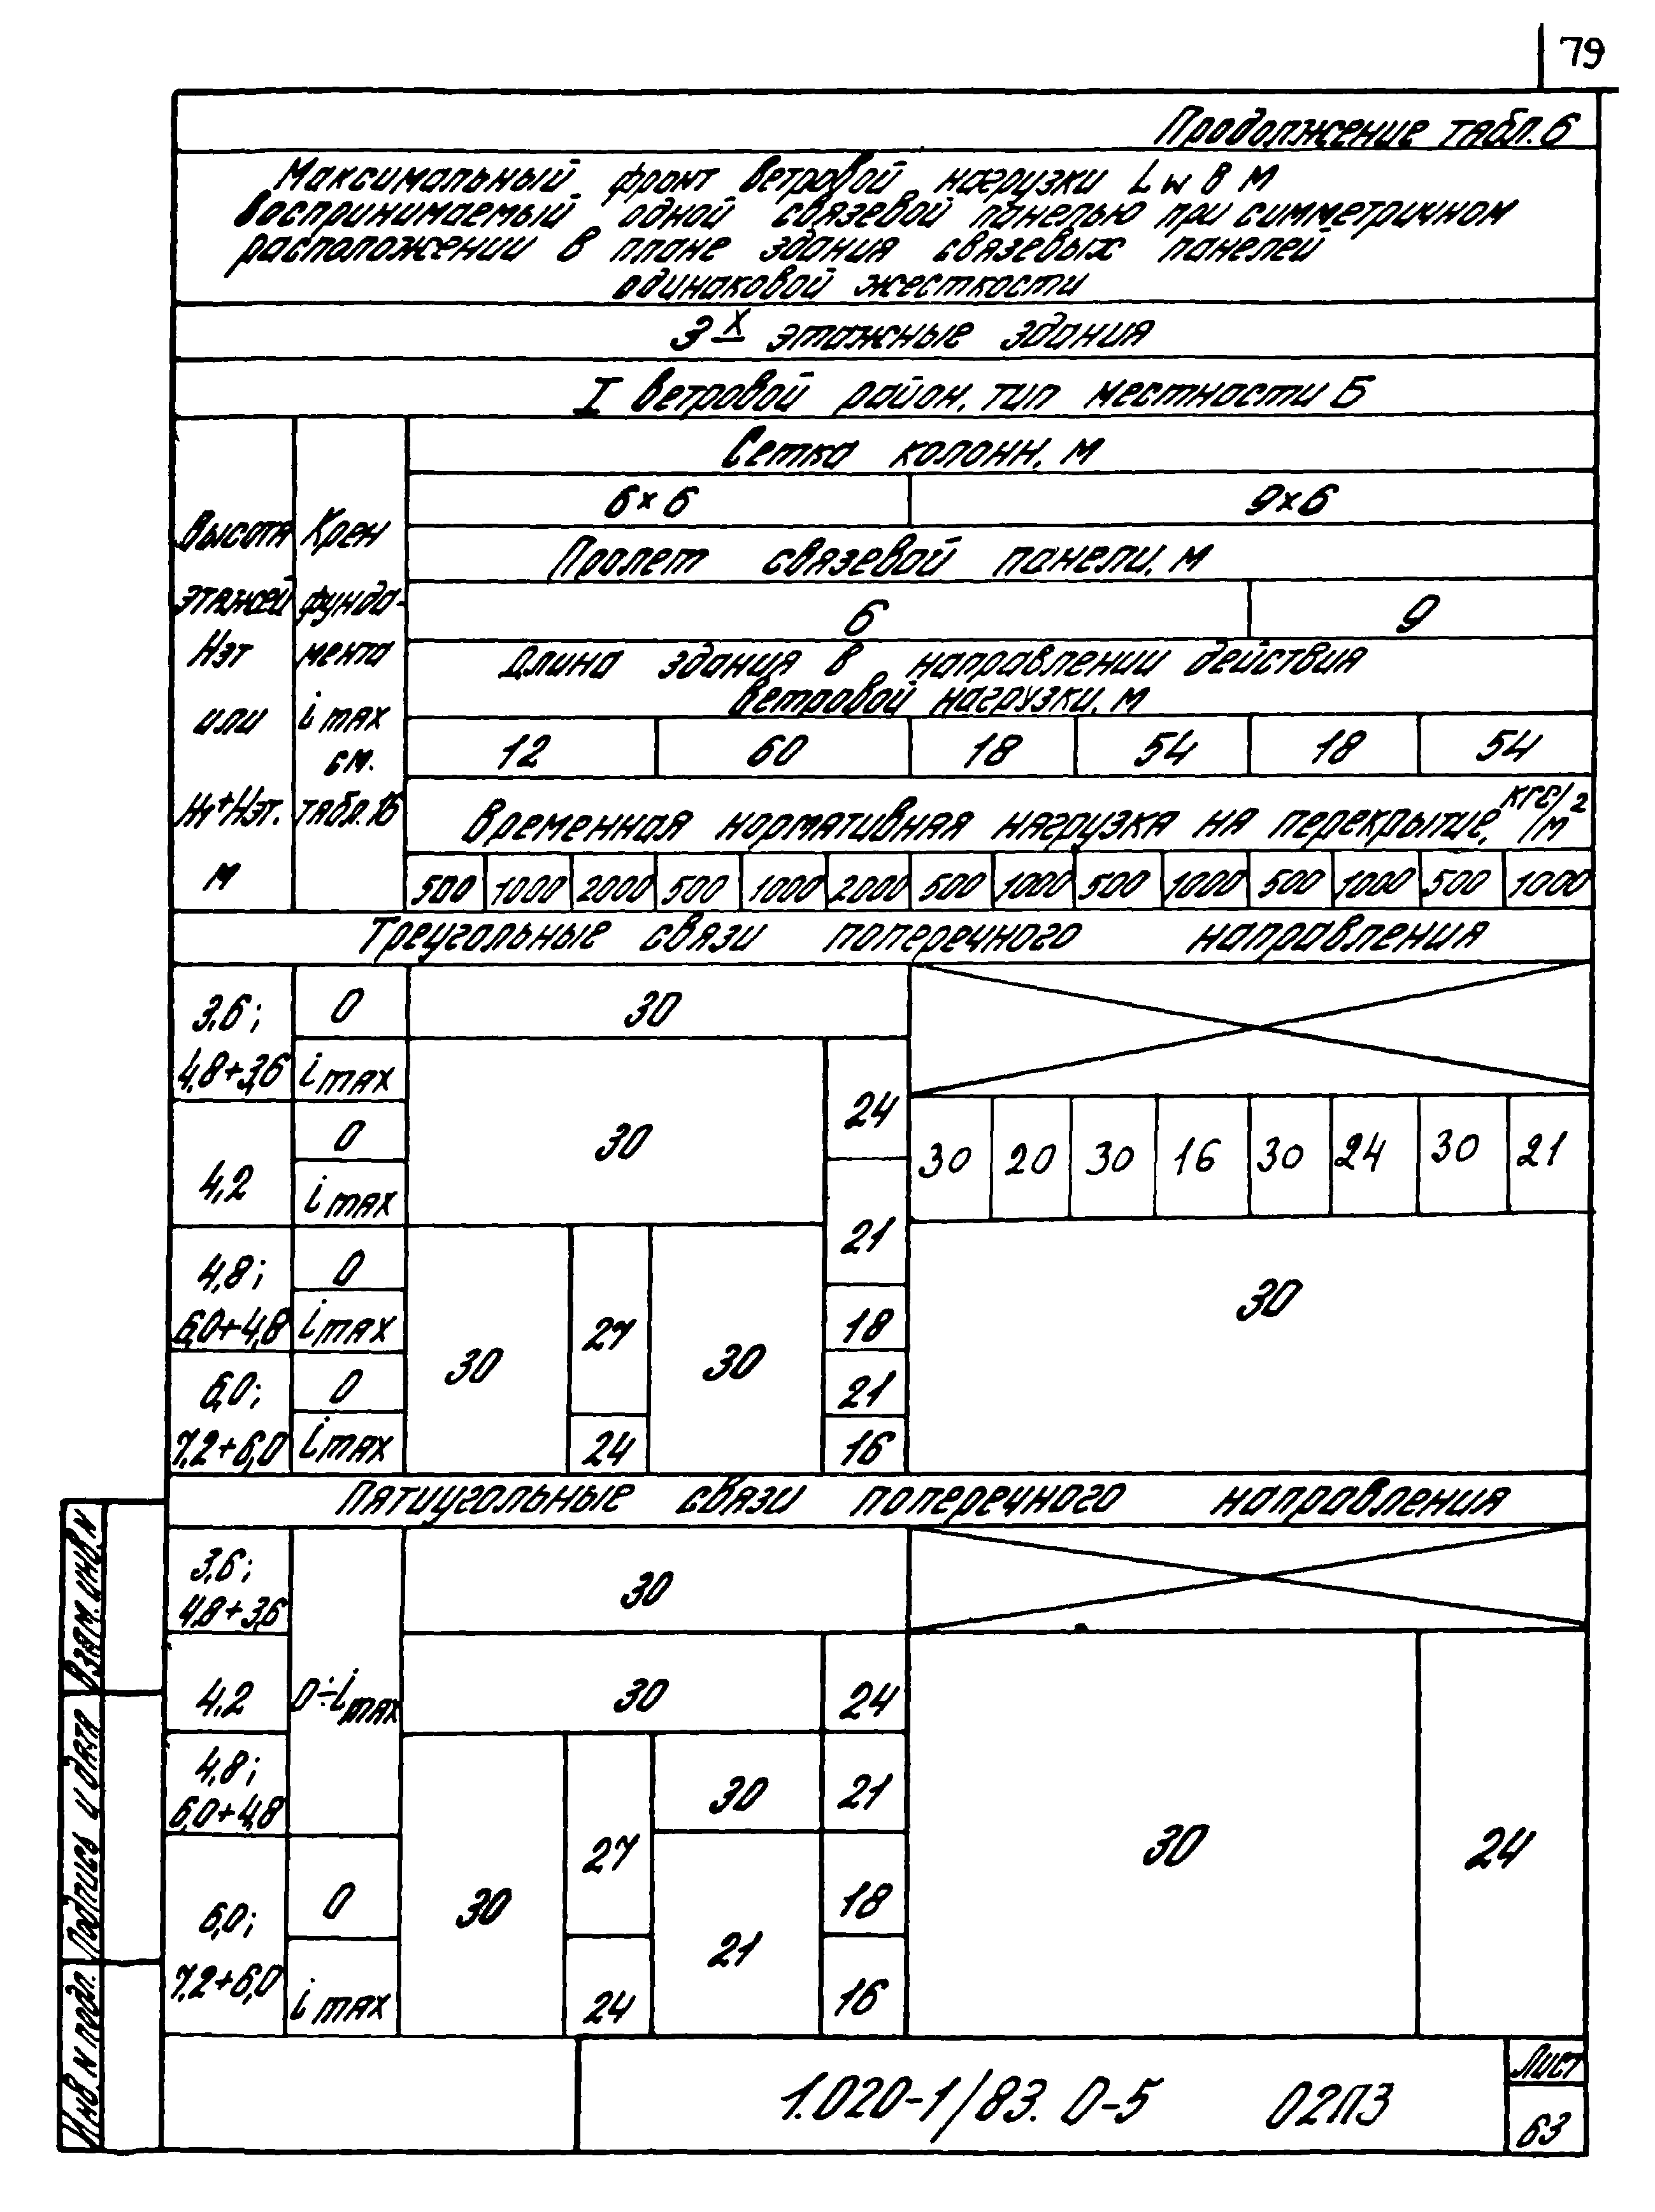 79
Продолжение табл. 6
Максимальный фронт ветровой нагрузки Lw в м
воспринимаемый одной связевой панелью при симметричном
расположении в плане здания связевых панелей
одинаковой жесткости
3х этажные здания
I ветровой район, тип местности Б
Высота этажей Hэт или H1+Hэт. м
Крен фундамента i max см. табл. 16
Сетка колонн, м
6×6 9×6
Пролет связевой панели, м
6 9
Длина здания в направлении действия
ветровой нагрузки, м
12 60 18 54 18 54
Временная нормативная нагрузка на перекрытие, кгс/м2
500 1000 2000 500 1000 2000 500 1000 500 1000 500 1000 500 1000
Треугольные связи поперечного направления
3,6; 0 30
4,8+3,6 i max
30 24
4,2 0
i max
30 20 30 16 30 24 30 21
21
4,8; 0
6,0+4,8 i max
30 27 30 18
30
6,0; 0 21
7,2+6,0 i max 24 16
Пятиугольные связи поперечного направления
3,6;
4,8+3,6
30
4,2 0÷i max 30 24
4,8;
6,0+4,8
30 21
30 27
30 24
6,0; 0 18
21
7,2+6,0 i max 24 16
1.020-1/83. 0-5 02ПЗ
Лист
63
Взам. инв. N
Подпись и дата
Инв N подл.